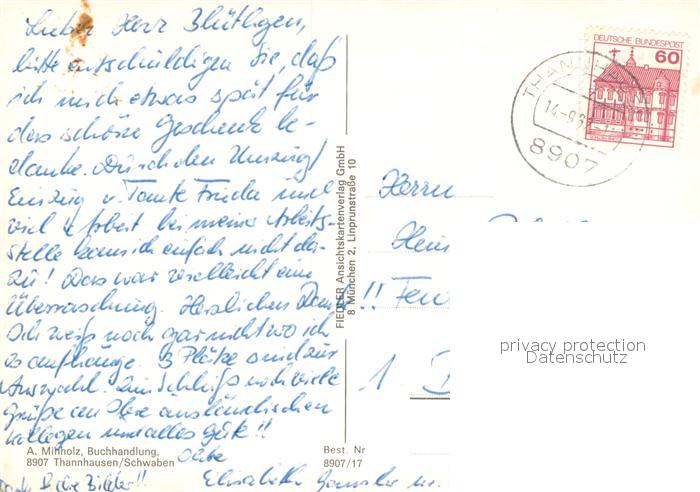 Lieber Herr Blüthgen,
bitte entschuldigen Sie, daß
ich mich etwas spät für
das schöne Geschenk be-
danke. Durch den Umzug/
Einzug v. Tante Frieda und
viel Arbeit bei meiner Arbeits-
stelle kam ich einfach nicht da-
zu! Das war vielleicht eine
Überraschung. Herzlichen Dank!!
Ich weiß noch gar nicht wo ich
es aufhänge. 3 Plätze sind zur
Auswahl. Zum Schluß noch viele
Grüße an Ihre ausländischen
Kollegen und alles Gute!!
Ihre
Elisabeth
A. Mihholz, Buchhandlung,
8907 Thannhausen/Schwaben
Best. Nr
8907/17
FIEDLER Ansichtskartenverlag GmbH
8 München 2, Linprunstraße 10
DEUTSCHE BUNDESPOST
60
THANNHAU
14-9.8
8907
Herrn
Hein
1
privacy protection
Datenschutz